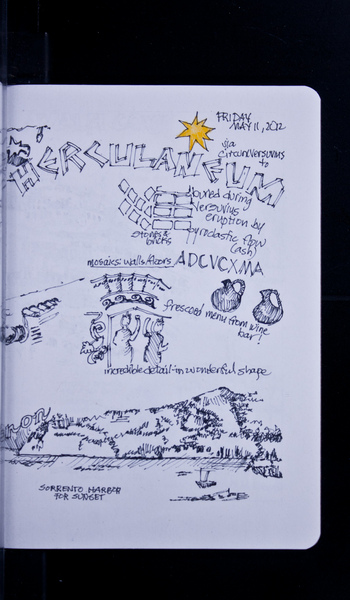 FRIDAY
MAY 11, 2012
via
circumvesuvius
to
HERCULANEUM
buried during
Vesuvius
eruption by
pyroclastic flow
(ash)
STONES &
BRICKS
mosaics: walls & floors ADCVCXMA
frescoed menu from wine
bar!
incredible detail - in wonderful shape
SORRENTO HARBOR
FOR SUNSET